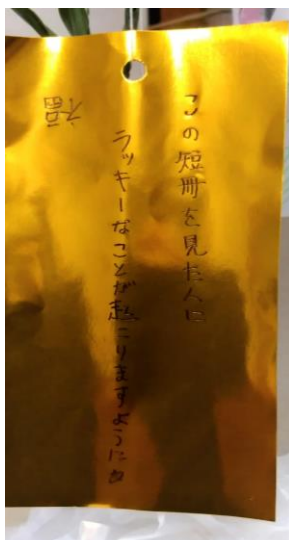 この短冊を見た人に
ラッキーなことが起こりますように
福